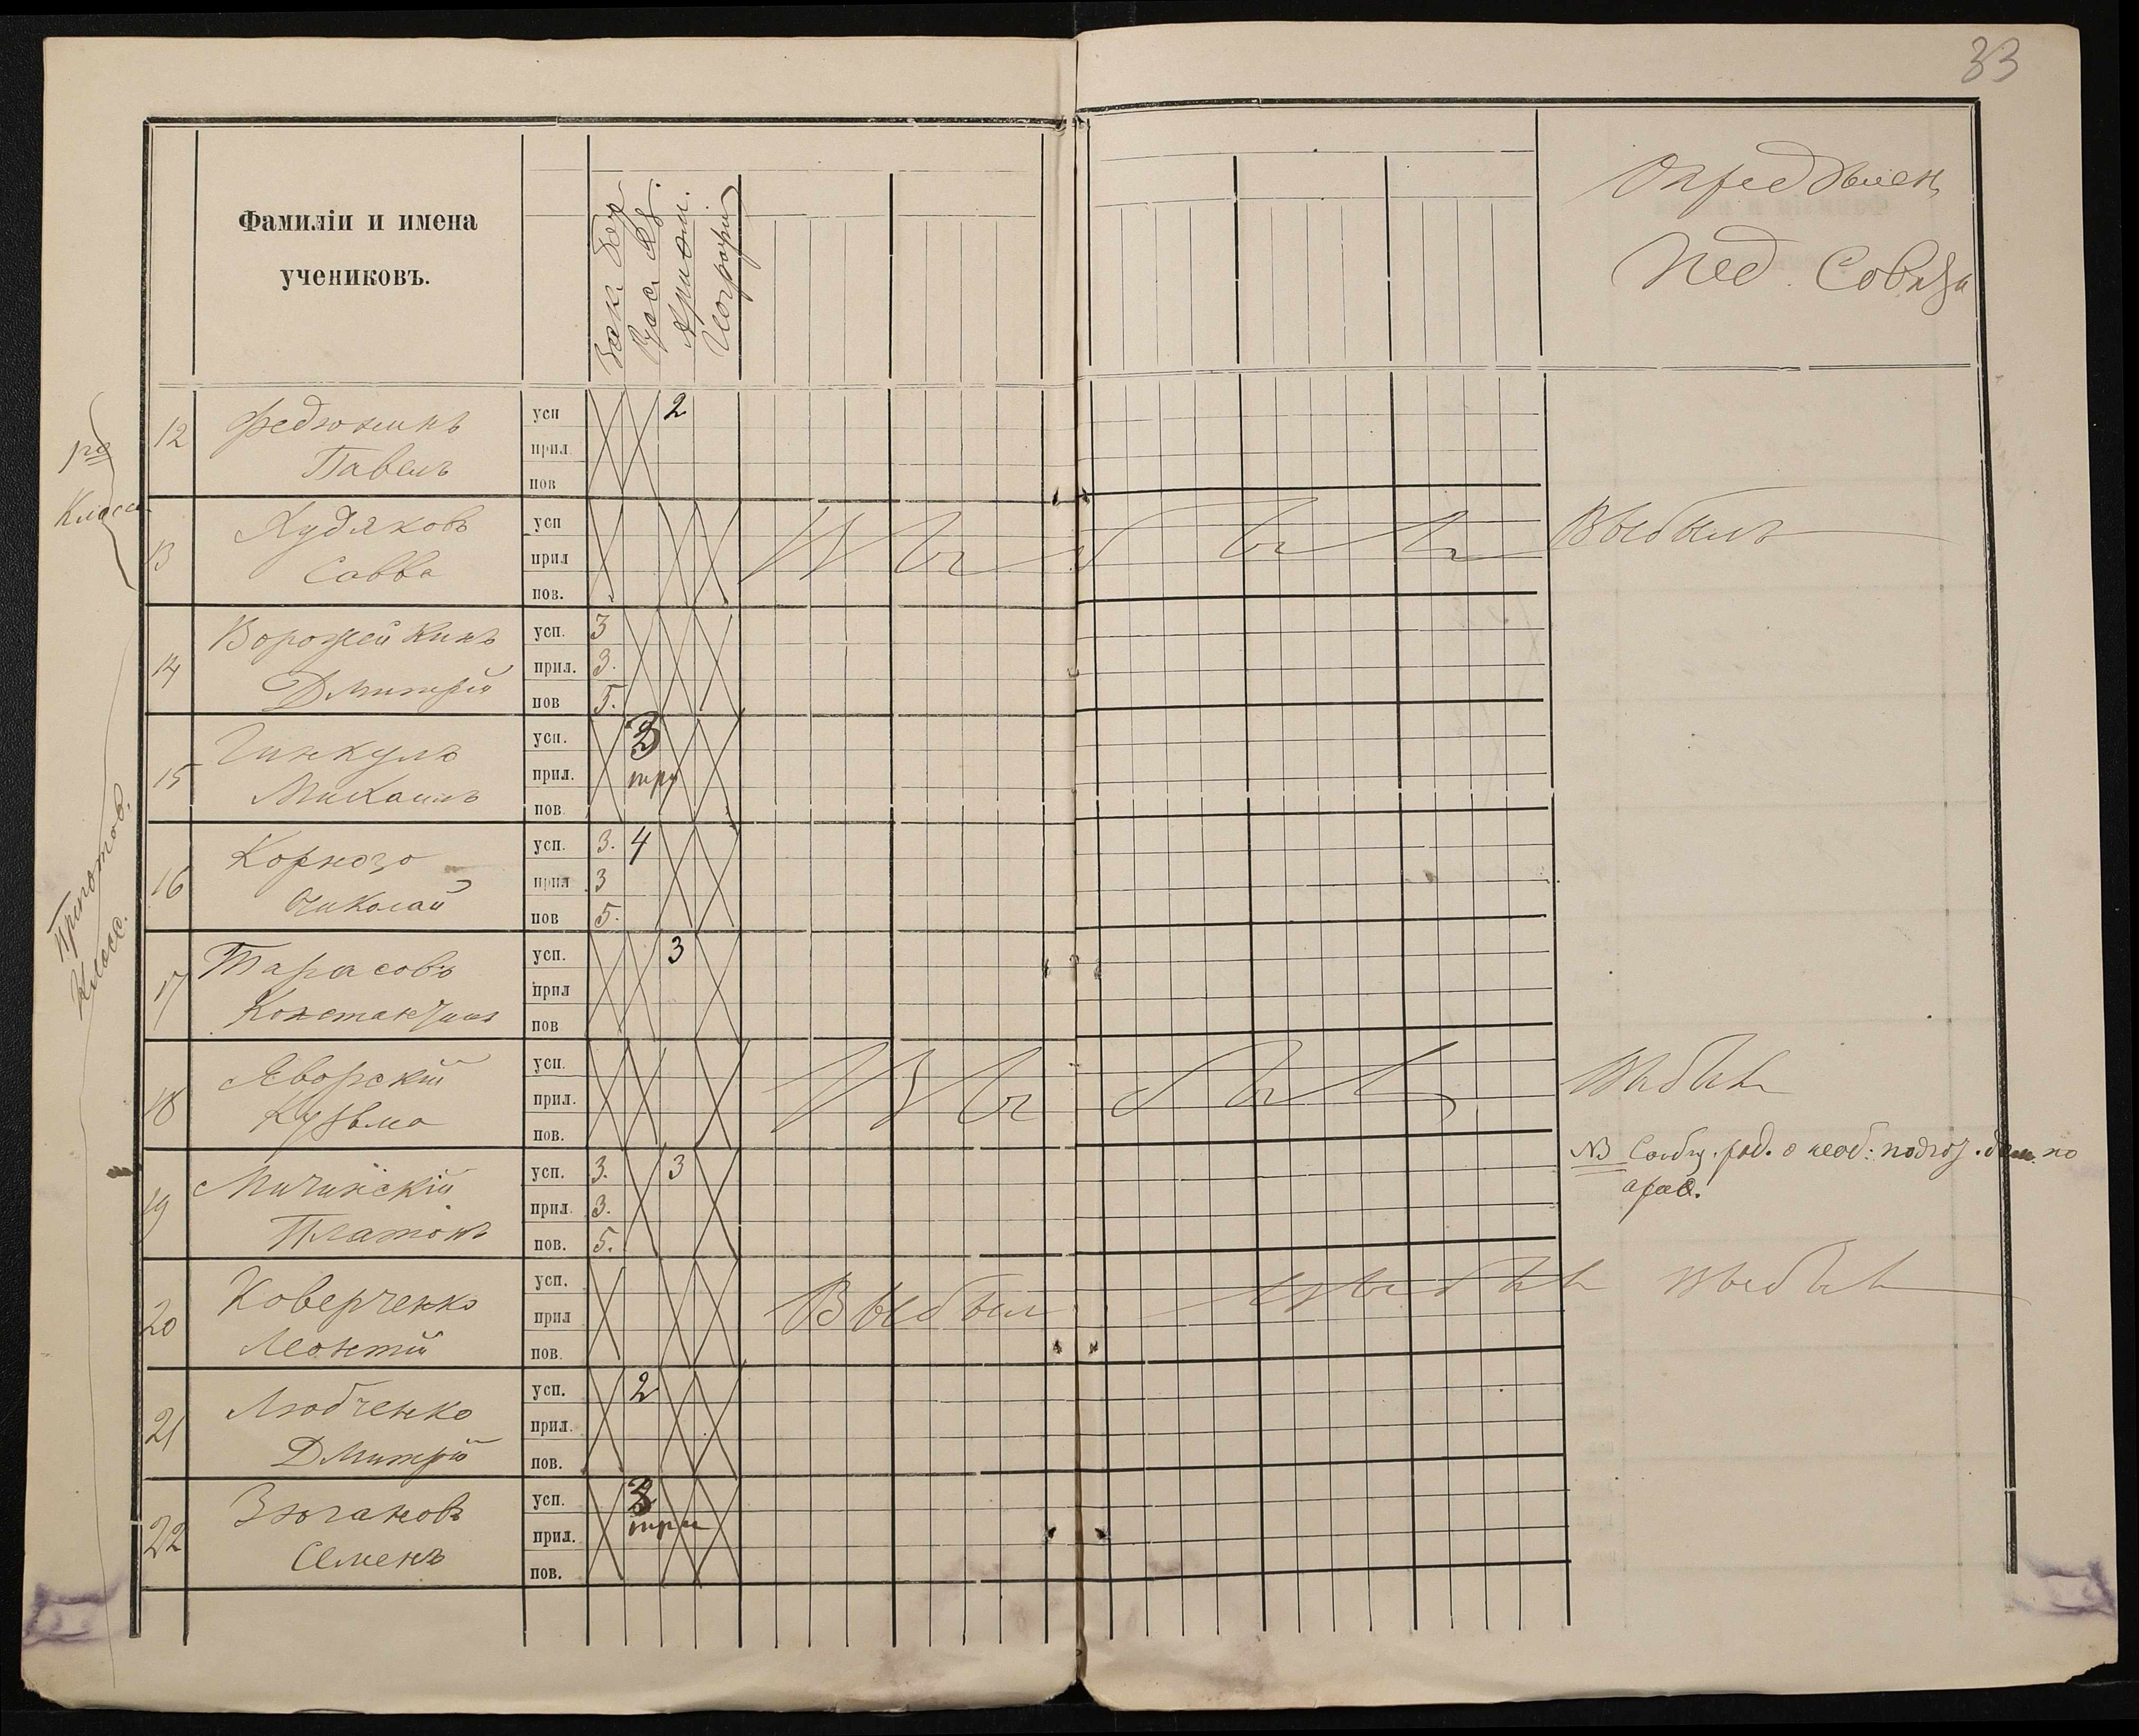 33
Фамиліи и имена
учениковъ.
Зак. Бож
Рус. яз.
Ариѳм.
Географія
Опредѣлен.
Пед. Совѣта
Класса
Приготов.
Класс.
12 Федюшинъ усп 2
Павелъ прил.
пов
13 Худяковъ усп Выбылъ Выбылъ
Савва прил
пов.
14 Ворожейкинъ усп. 3
прил. 3.
Дмитрій пов 5.
15 Гинкулъ усп. 3
Михаилъ прил. три
пов.
16 усп. 3. 4
прил 3
Николай пов 5.
17 Тарасовъ усп. 3
прил
Константинъ пов
18 Яворскій усп. Выбылъ Выбылъ
Кузьма прил.
пов.
19 Мичинскій усп. 3. 3 NB Сообщ. род. о необ. подгот. по
прил. 3. ариѳ.
Платонъ пов. 5.
20 Коверченко усп.
прил Выбыл выбылъ выбылъ
Леонтій пов.
21 Любченко усп. 2
прил.
Дмитрій пов.
22 Зюгановъ усп. 3
прил. три
Семенъ пов.